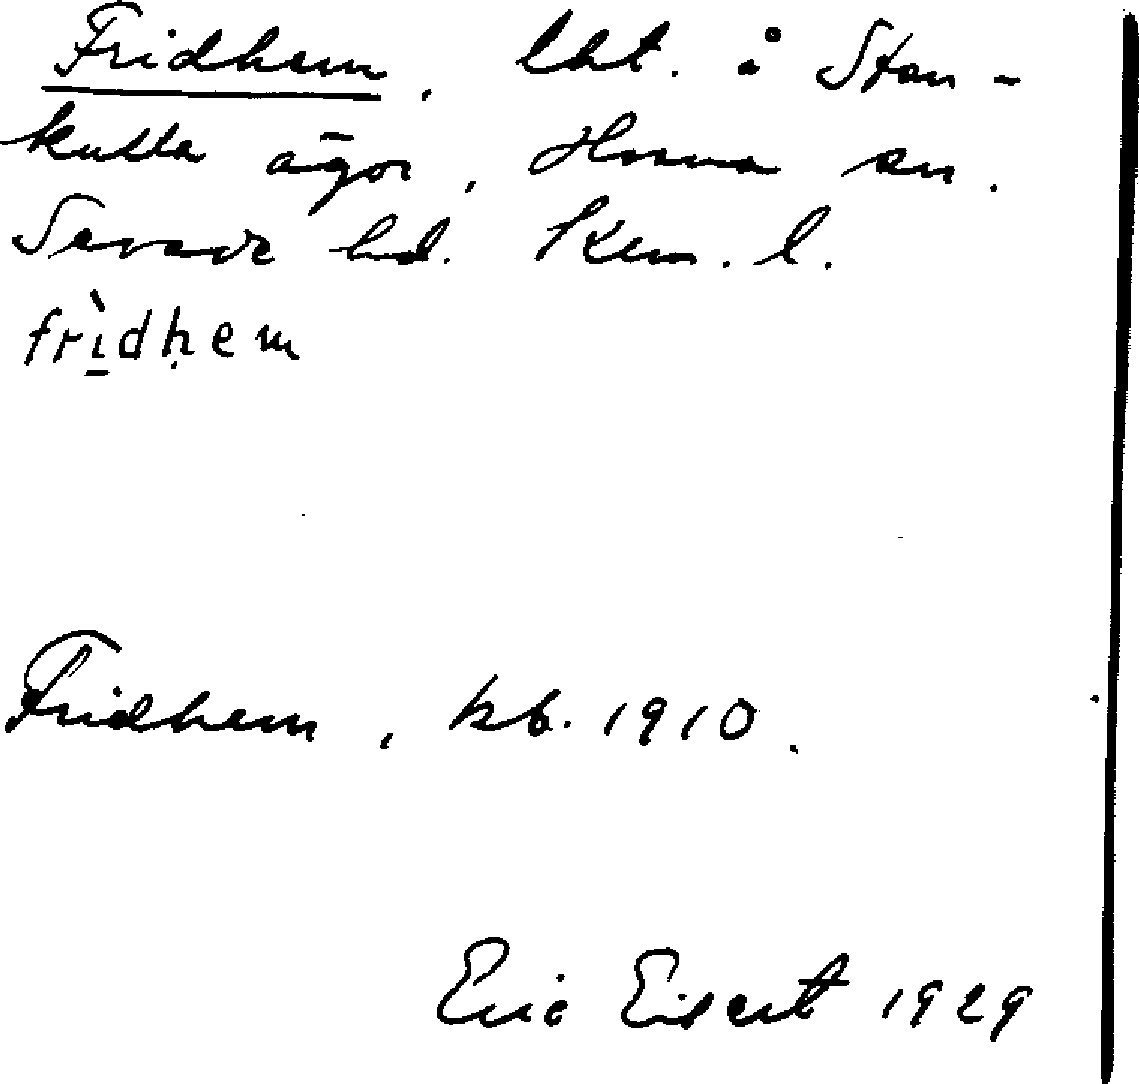 Fridhem, lht. å Stens-
kulla ägor, Hvena sn.
Sevede hd. Kem. l.
frìdḥem
Fridhem, kb. 1910.
Eric Eisert 1929